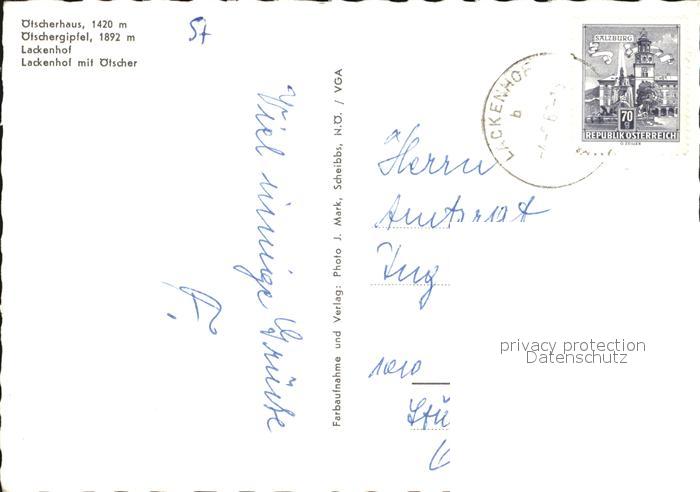 Ötscherhaus, 1420 m
Ötschergipfel, 1892 m
Lackenhof
Lackenhof mit Ötscher
St
Viel innige Grüsse
F.
Farbaufnahme und Verlag: Photo J. Mark, Scheibbs, N.Ö. / VGA
LACKENHOF
b
SALZBURG
70
REPUBLIK ÖSTERREICH
Herrn
Amtsrat
Ing
1010
privacy protection
Datenschutz